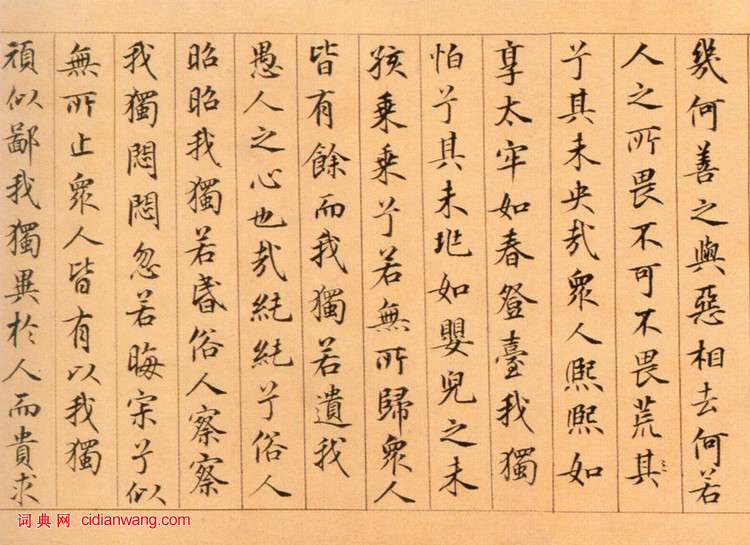 幾何善之與惡相去何若
人之所畏不可不畏荒其
兮其未央哉眾人熙熙如
享太牢如春登臺我獨
怕兮其未兆如嬰兒之未
孩乘乘兮若無所歸眾人
皆有餘而我獨若遺我
愚人之心也哉純純兮俗人
昭昭我獨若昏俗人察察
我獨悶悶忽若晦寂兮似
無所止眾人皆有以我獨
頑似鄙我獨異於人而貴求
词典网 cidianwang.com